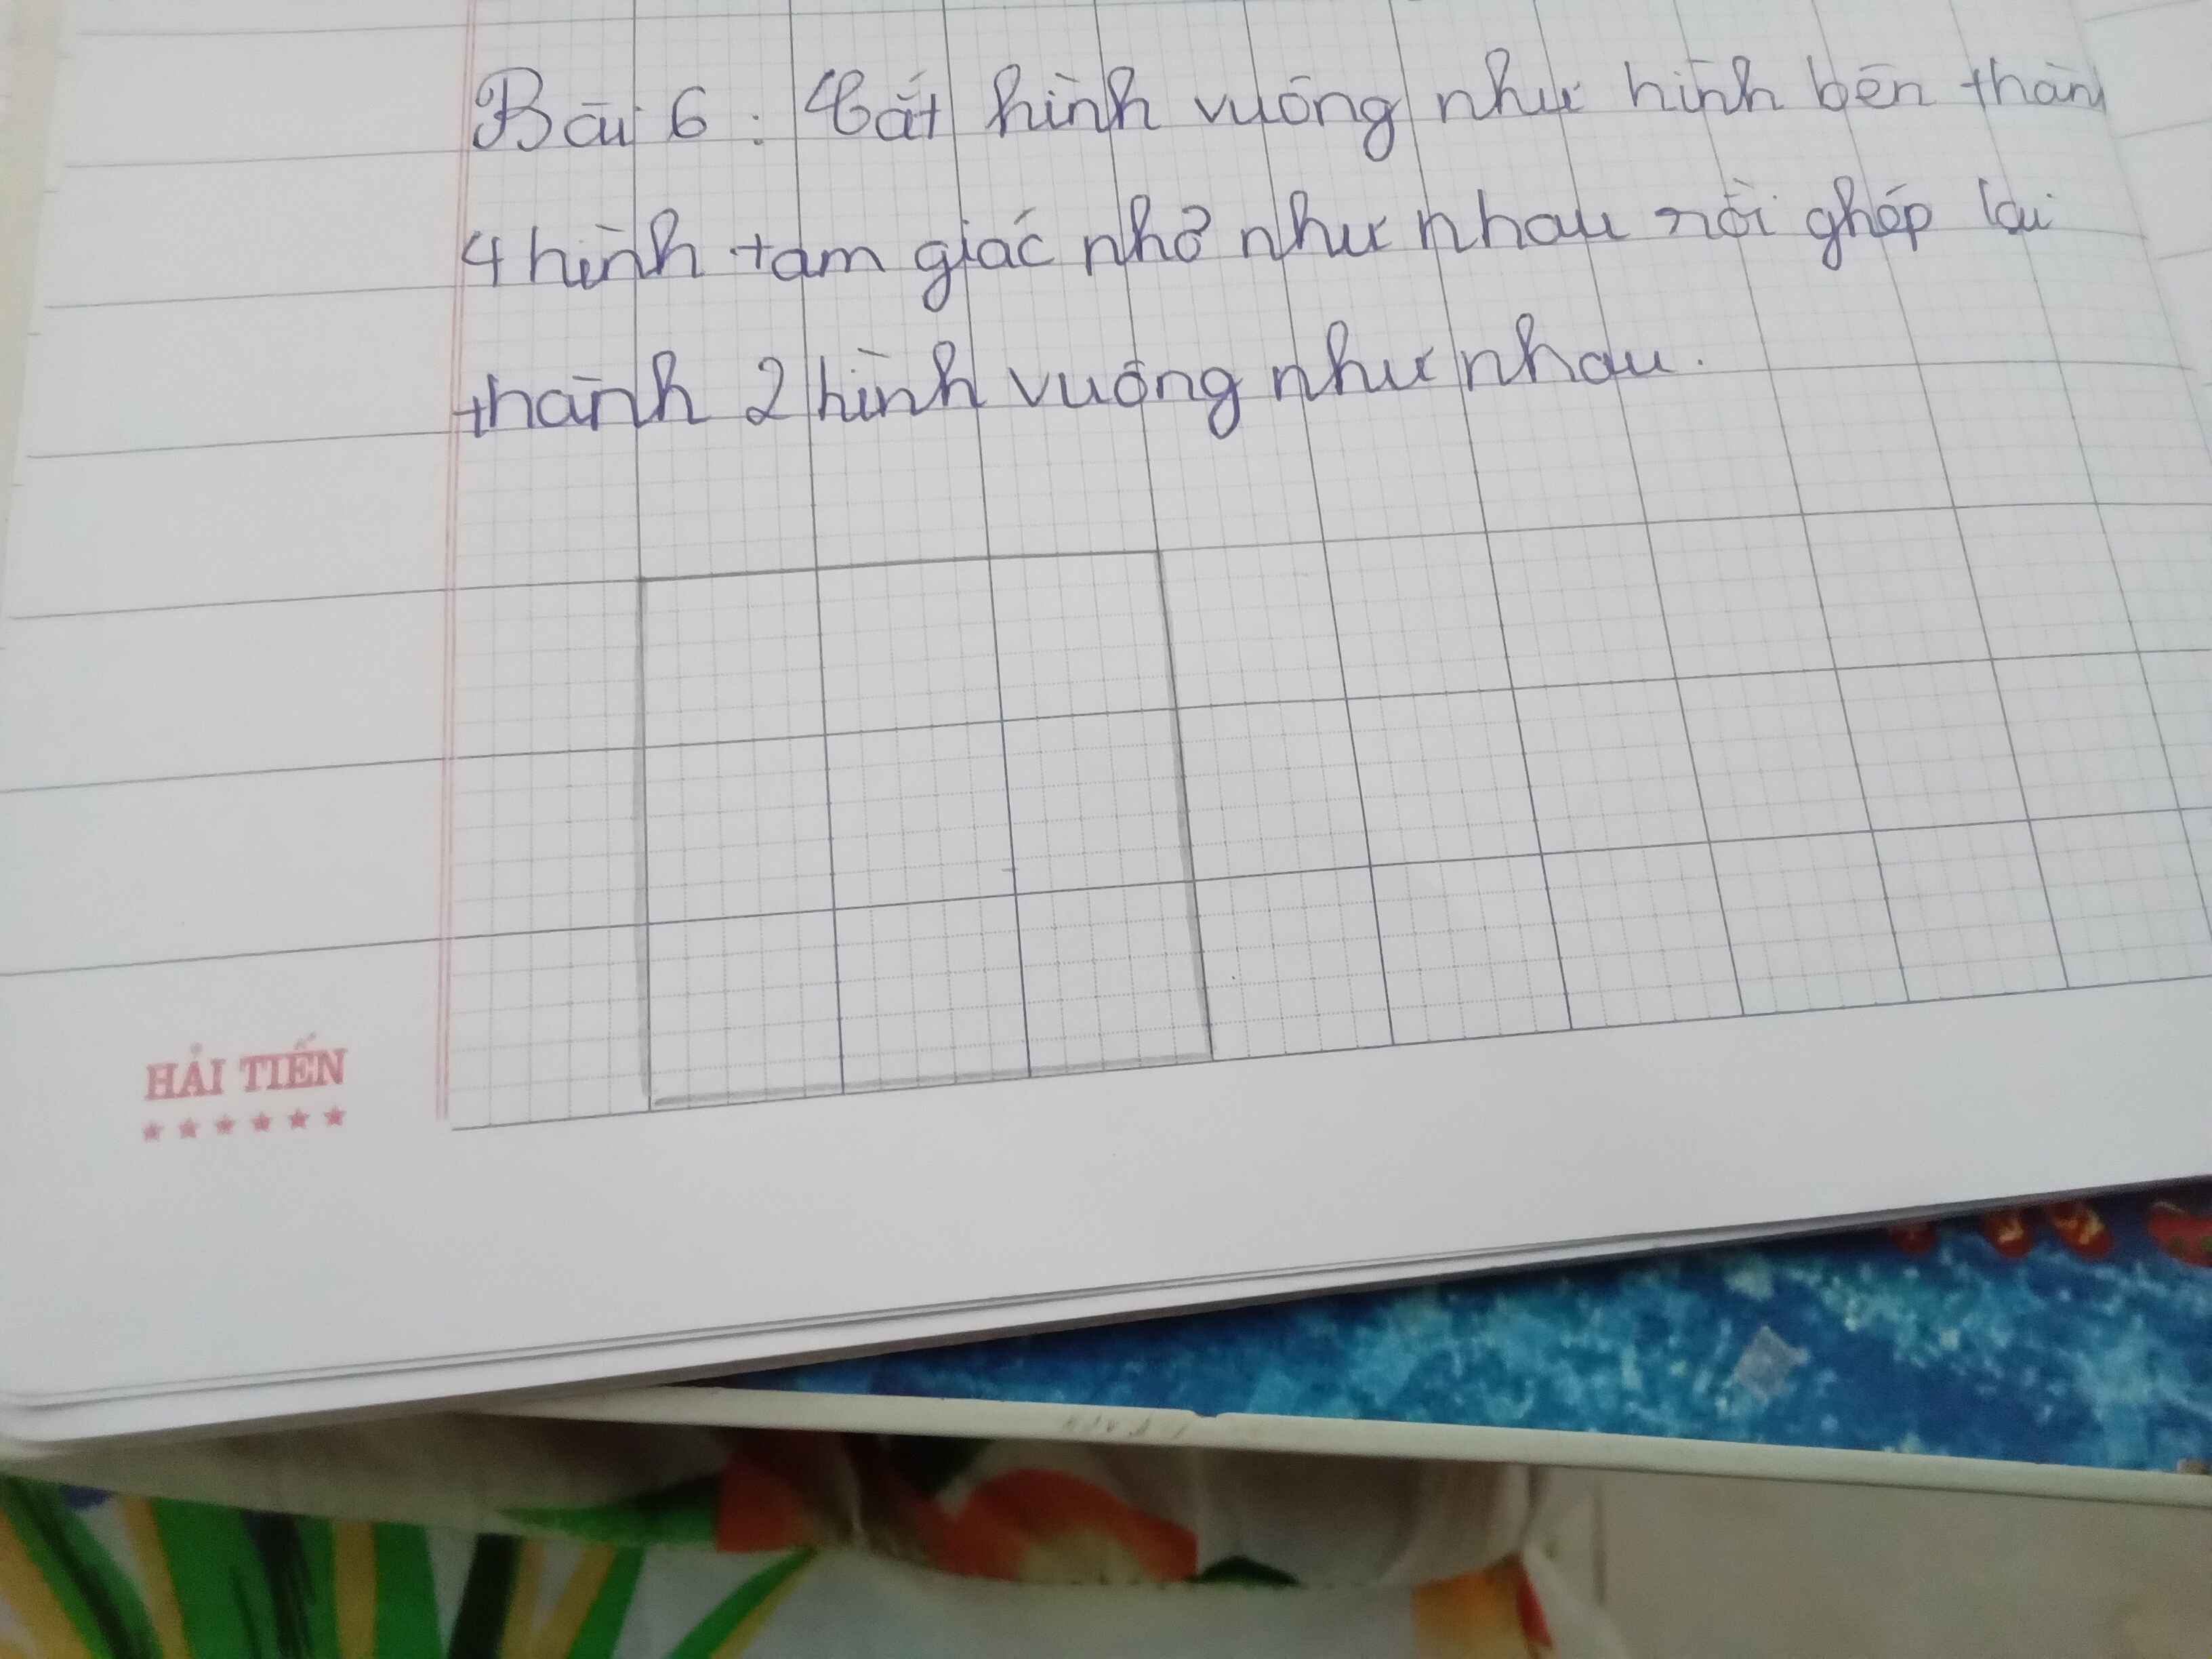 Bài 6 : Cắt hình vuông như hình bên thành
4 hình tam giác nhỏ như nhau rồi ghép lại
thành 2 hình vuông như nhau.
HẢI TIẾN